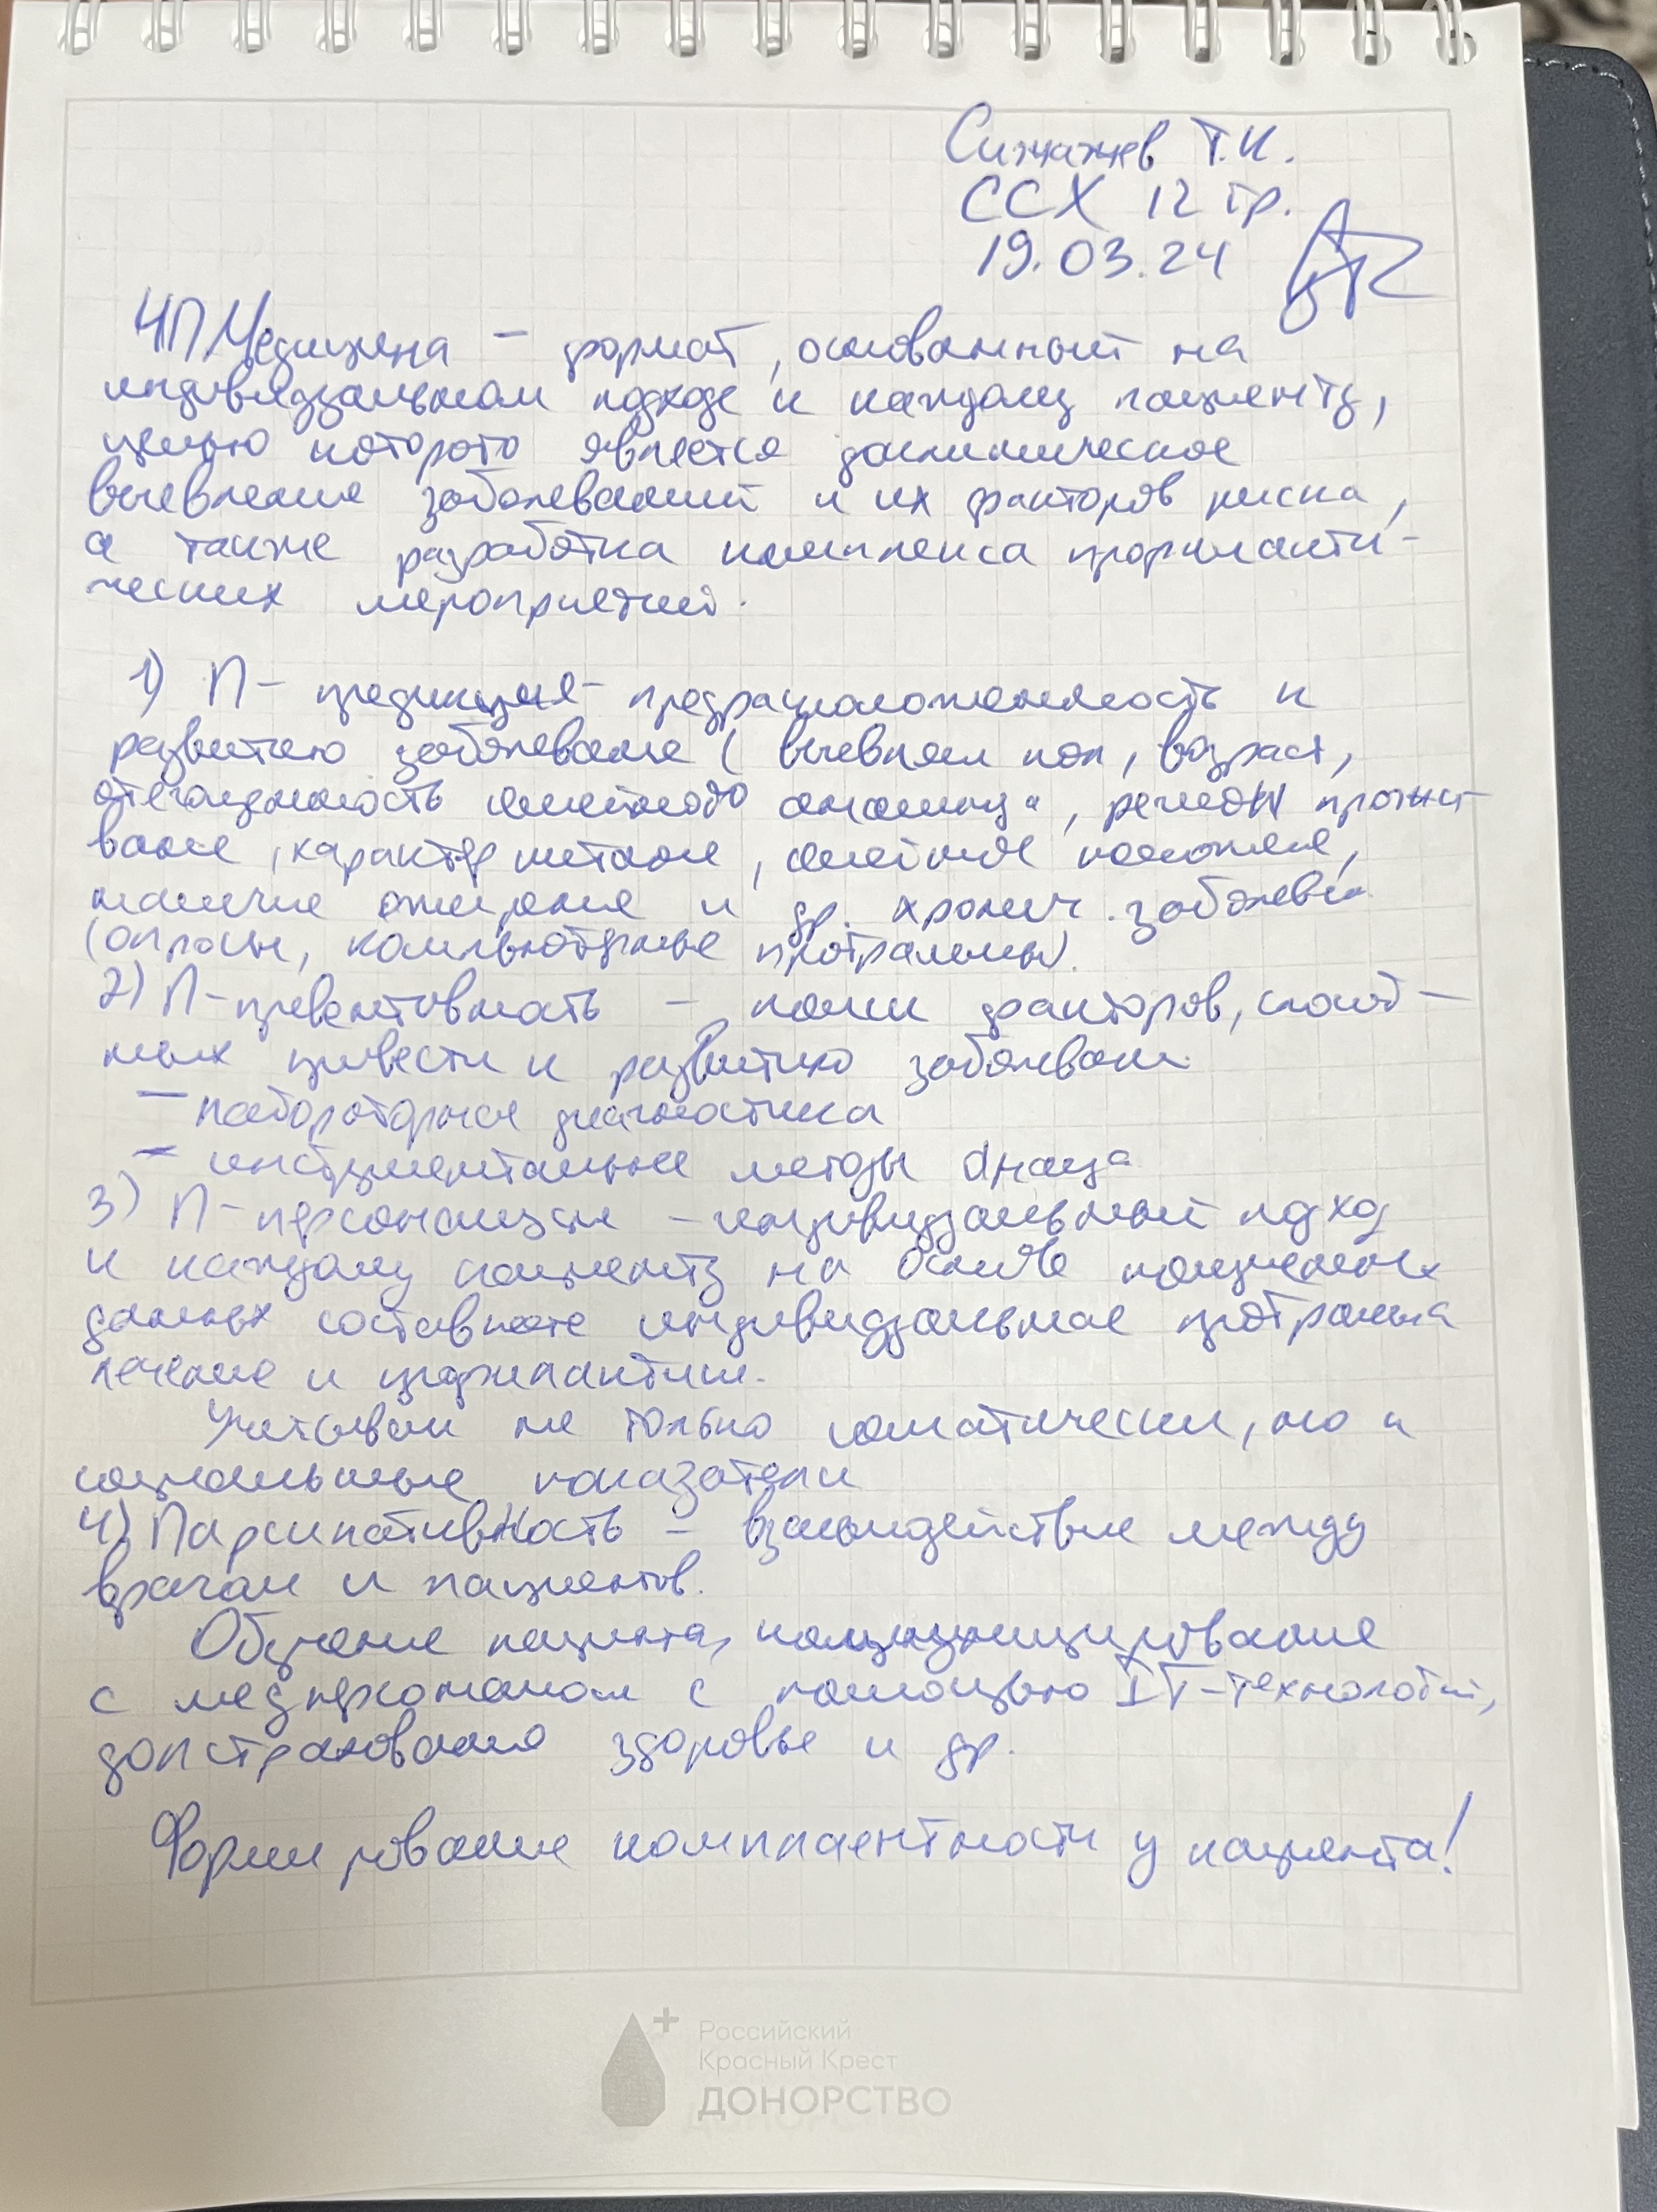 Сижажев Т.К.
ССХ 12 гр.
19.03.24
4П Медицина – формат, основанный на
индивидуальном подходе к каждому пациенту,
целью которого является доклиническое
выявление заболеваний и их факторов риска,
а также разработка комплекса профилакти-
ческих мероприятий.
1) П – предикция – предрасположенность к
развитию заболевание ( выявляем пол, возраст,
отягощенность семейного анамнеза, регион прожи-
вание, характер питание, семейное положение,
наличие ожирение и др. хронич. заболеван
(опросы, компьютерные программы).
2) П – превентивность – поиск факторов, способ-
ных привести к развитию заболевани
– лабораторная диагностика
– инструментальные методы
3) П – персонализм – индивидуальный подход
к каждому пациенту на основе полученных
данных составляете индивидуальная программа
лечение и профилактики.
Учитываем не только соматически, но и
социальные показатели
4) Парсипативность – взаимодействие между
врачом и пациентов.
Обучение пациента, коммуницирование
с медперсоналом с помощью IT-технологий,
допстрахование здоровье и др.
Формирование комплаентности у пациента!
Российский
Красный Крест
ДОНОРСТВО